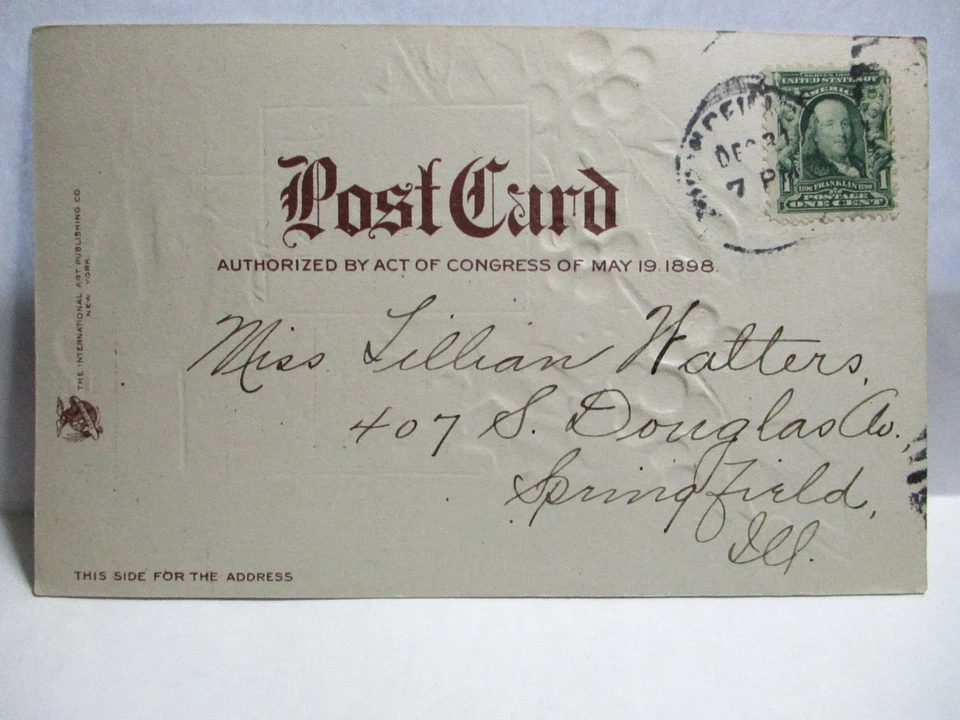 SERIES 1902
UNITED STATES OF
AMERICA
1706 FRANKLIN 1790
1 1
POSTAGE
ONE CENT
DEC 31
7 PM
Post Card
AUTHORIZED BY ACT OF CONGRESS OF MAY 19.1898.
THE INTERNATIONAL ART PUBLISHING CO.
NEW YORK
Miss Lillian Watters,
407 S. Douglas Av.,
Springfield,
Ill.
THIS SIDE FOR THE ADDRESS